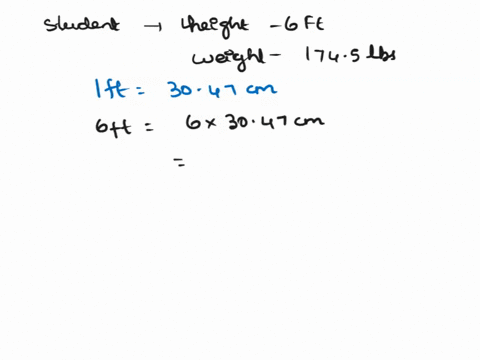 student → height - 6 Ft
weight - 174.5 lbs
1ft = 30.47 cm
6ft = 6 x 30.47 cm
=